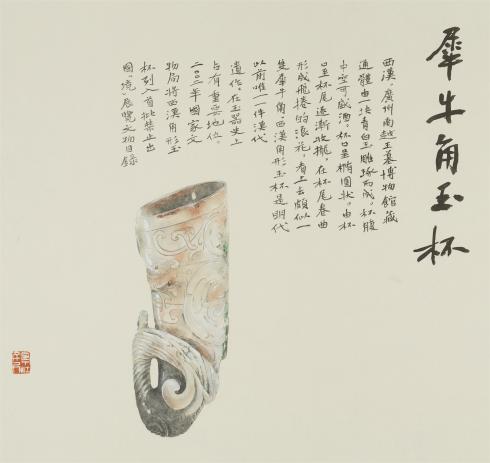 犀牛角玉杯
西漢。廣州南越王墓博物館藏
通體由一塊青白玉雕琢而成。杯腹
中空可盛酒。杯口呈橢圓狀。由杯
口至杯尾逐漸收攏。在杯尾卷曲
形成飛捲的浪花。看上去頗似一
隻犀牛角。西漢角形玉杯是明代
以前唯一一件漢代
遺作。在玉器史上
占有重要地位。
二〇〇二年國家文
物局將西漢角形玉
杯列入首批禁止出
國(境)展覽文物目錄